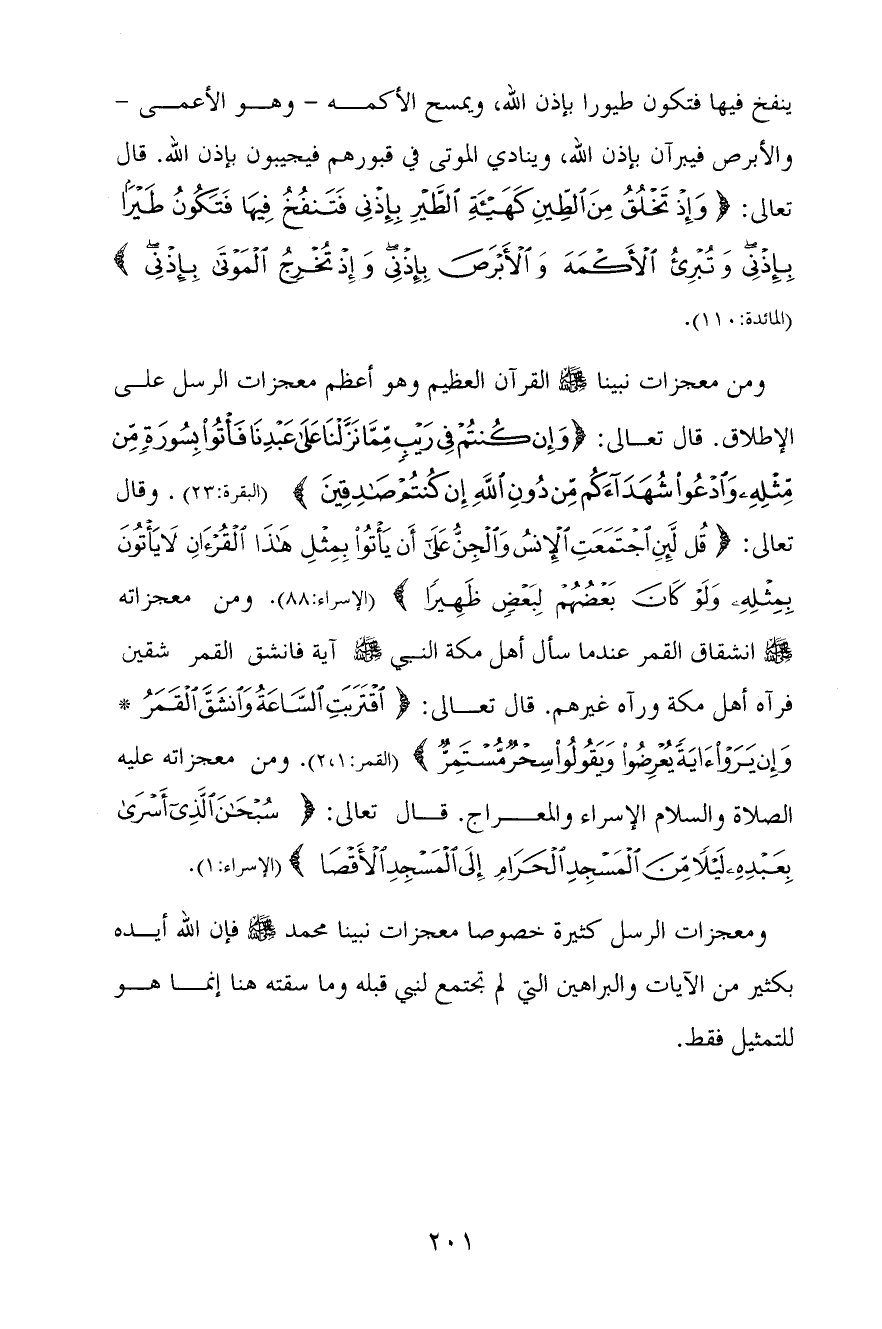 ينفخ فيها فتكون طيورا بإذن الله، ويمسح الأكمـــه - وهـــو الأعمـــى -
والأبرص فيبرآن بإذن الله، وينادي الموتى في قبورهم فيجيبون بإذن الله. قال
تعالى: ﴿ وَإِذْ تَخْلُقُ مِنَ ٱلطِّينِ كَهَيْئَةِ ٱلطَّيْرِ بِإِذْنِي فَتَنفُخُ فِيهَا فَتَكُونُ طَيْرًۢا
بِإِذْنِيۖ وَتُبْرِئُ ٱلْأَكْمَهَ وَٱلْأَبْرَصَ بِإِذْنِيۖ وَإِذْ تُخْرِجُ ٱلْمَوْتَىٰ بِإِذْنِيۖ ﴾
(المائدة:١١٠).
ومن معجزات نبينا ﷺ القرآن العظيم وهو أعظم معجزات الرسل علـى
الإطلاق. قال تعـالى: ﴿وَإِن كُنتُمْ فِى رَيْبٍ مِّمَّا نَزَّلْنَا عَلَىٰ عَبْدِنَا فَأْتُوا۟ بِسُورَةٍ مِّن
مِّثْلِهِۦ وَٱدْعُوا۟ شُهَدَآءَكُم مِّن دُونِ ٱللَّهِ إِن كُنتُمْ صَٰدِقِينَ ﴾ (البقرة:٢٣). وقال
تعالى: ﴿ قُل لَّئِنِ ٱجْتَمَعَتِ ٱلْإِنسُ وَٱلْجِنُّ عَلَىٰٓ أَن يَأْتُوا۟ بِمِثْلِ هَٰذَا ٱلْقُرْءَانِ لَا يَأْتُونَ
بِمِثْلِهِۦ وَلَوْ كَانَ بَعْضُهُمْ لِبَعْضٍ ظَهِيرًا ﴾ (الإسراء:٨٨). ومن معجزاته
ﷺ انشقاق القمر عندما سأل أهل مكة النبي ﷺ آية فانشق القمر شقين
فرآه أهل مكة ورآه غيرهم. قال تعـــالى: ﴿ ٱقْتَرَبَتِ ٱلسَّاعَةُ وَٱنشَقَّ ٱلْقَمَرُ *
وَإِن يَرَوْا۟ ءَايَةً يُعْرِضُوا۟ وَيَقُولُوا۟ سِحْرٌ مُّسْتَمِرٌّ ﴾ (القمر:٢،١). ومن معجزاته عليه
الصلاة والسلام الإسراء والمعـــراج. قـــال تعالى: ﴿ سُبْحَٰنَ ٱلَّذِىٓ أَسْرَىٰ
بِعَبْدِهِۦ لَيْلًا مِّنَ ٱلْمَسْجِدِ ٱلْحَرَامِ إِلَى ٱلْمَسْجِدِ ٱلْأَقْصَا ﴾ (الإسراء:١).
ومعجزات الرسل كثيرة خصوصا معجزات نبينا محمد ﷺ فإن الله أيـــده
بكثير من الآيات والبراهين التي لم تجتمع لنبي قبله وما سقته هنا إنمـــا هـــو
للتمثيل فقط.
٢٠١